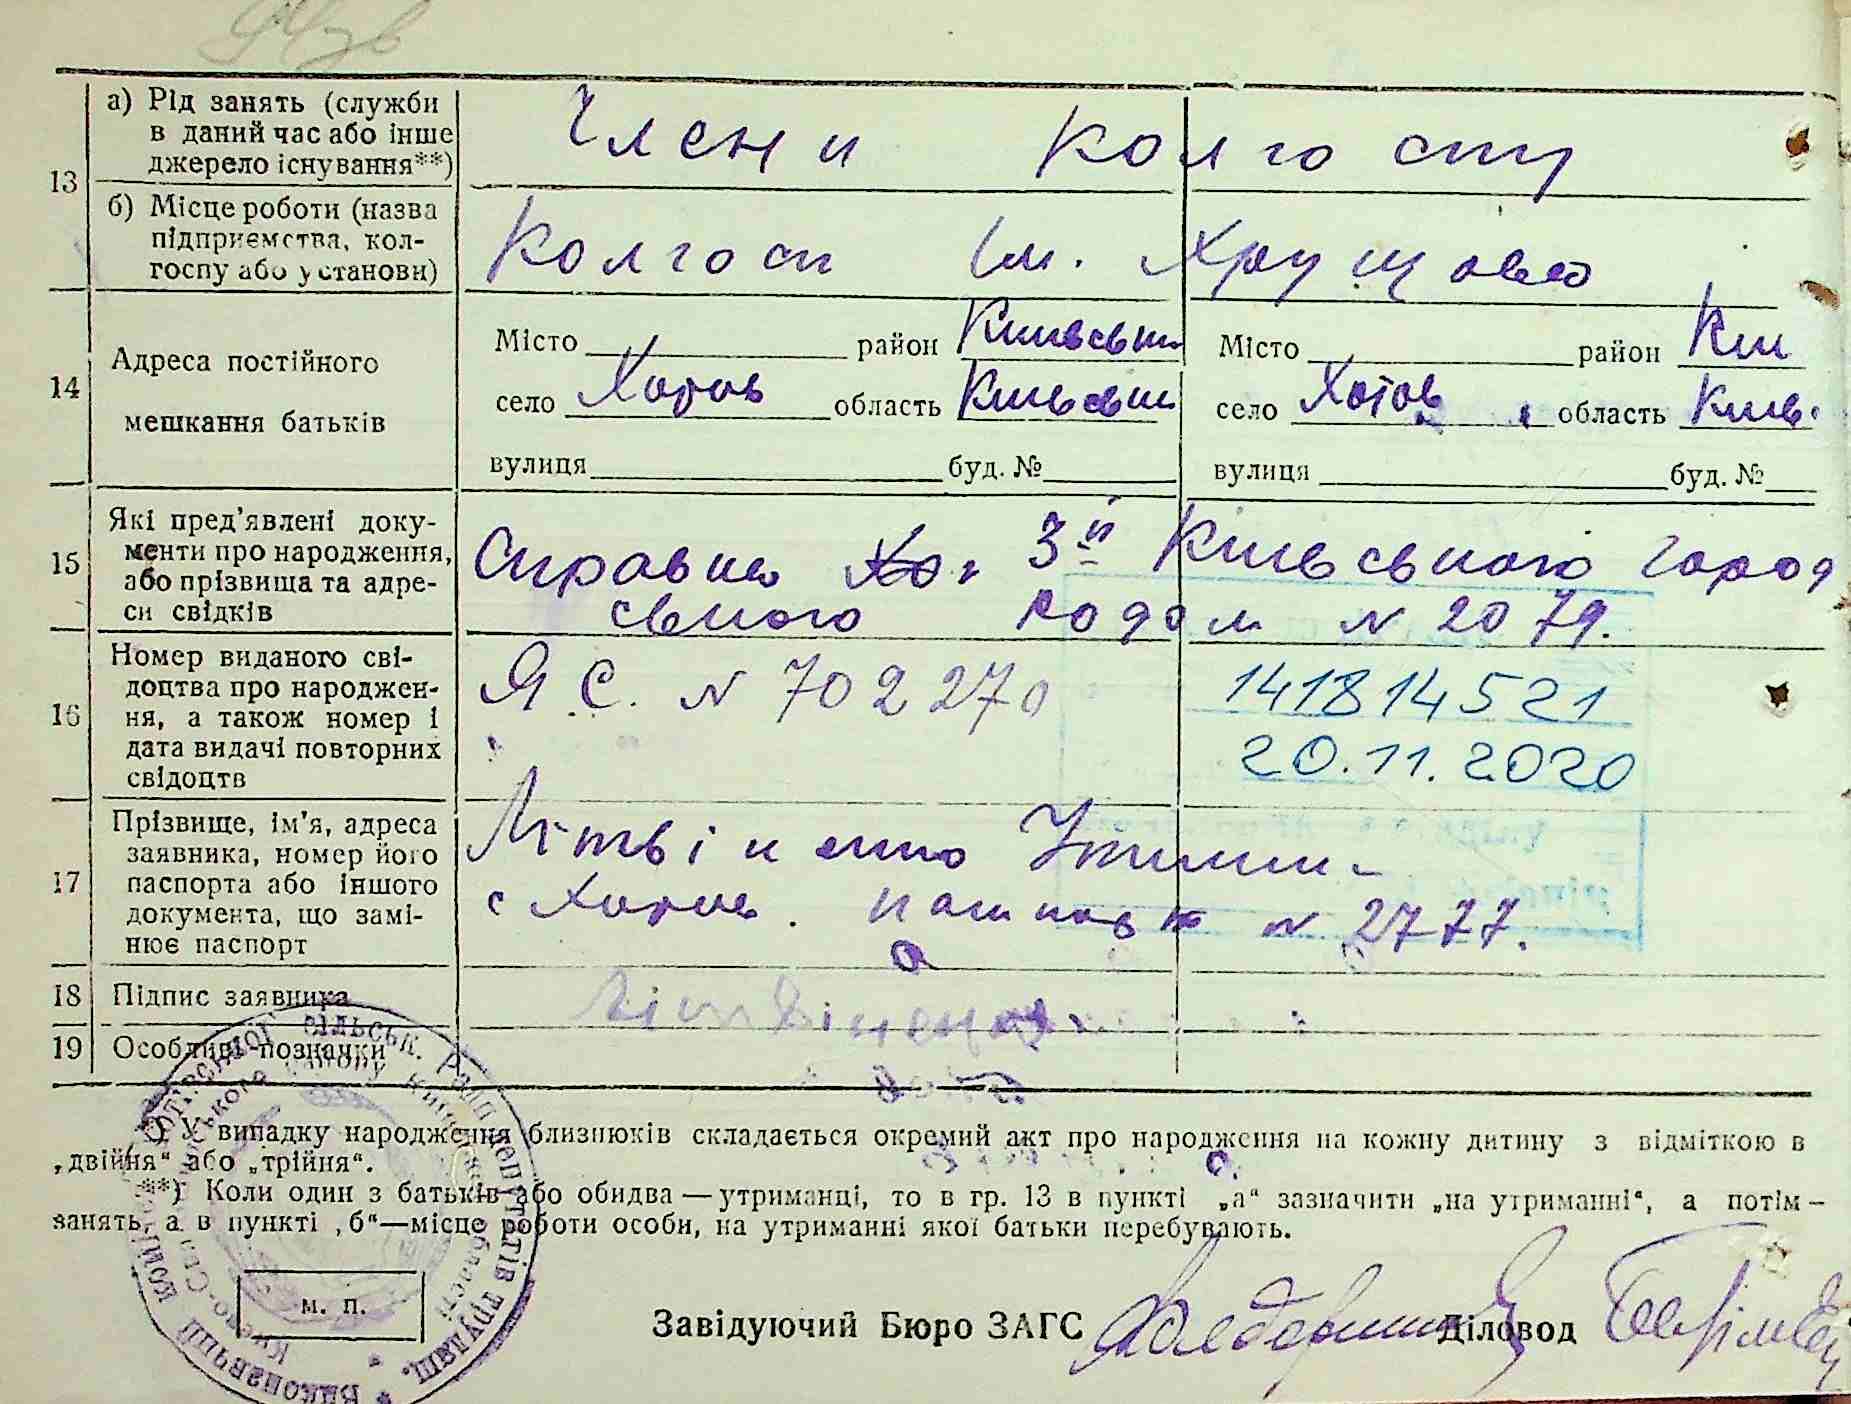 13
а) Рід занять (служби в даний час або інше джерело існування**)
Члени колгоспу
б) Місце роботи (назва підприємства, колгоспу або установи)
Колгосп Ім. Хрущова
14
Адреса постійного мешкання батьків
Місто район Київськи Місто район Ки
село Хотов область Київськи село Хотов область Київ.
вулиця буд. № вулиця буд. №
15
Які пред'явлені документи про народження, або прізвища та адреси свідків
Справка 3й Київського город
ського родом N 2079.
16
Номер виданого свідоцтва про народження, а також номер і дата видачі повторних свідоцтв
Я С. N 702270
141814521
20.11.2020
17
Прізвище, ім'я, адреса заявника, номер його паспорта або іншого документа, що замінює паспорт
Літвіненко
с Хотов. N 2777.
18
Підпис заявника
Літвіненко
19
Особливі позначки
*) У випадку народження близнюків складається окремий акт про народження на кожну дитину з відміткою в
„двійня“ або „трійня“.
**) Коли один з батьків або обидва — утриманці, то в гр. 13 в пункті „а“ зазначити „на утриманні“, а потім –
занять, а в пункті „б“—місце роботи особи, на утриманні якої батьки перебувають.
м. п.
Завідуючий Бюро ЗАГС Діловод